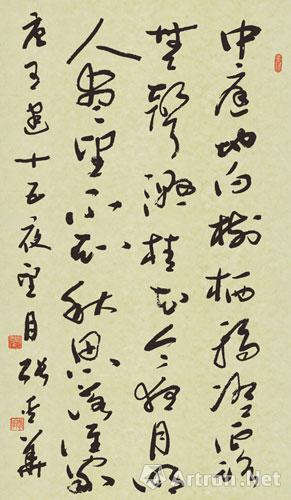 中庭地白樹栖鴉冷露
無聲濕桂花今夜月明
人盡望不知秋思落誰家
唐王建十五夜望月 張華
Artron.Net